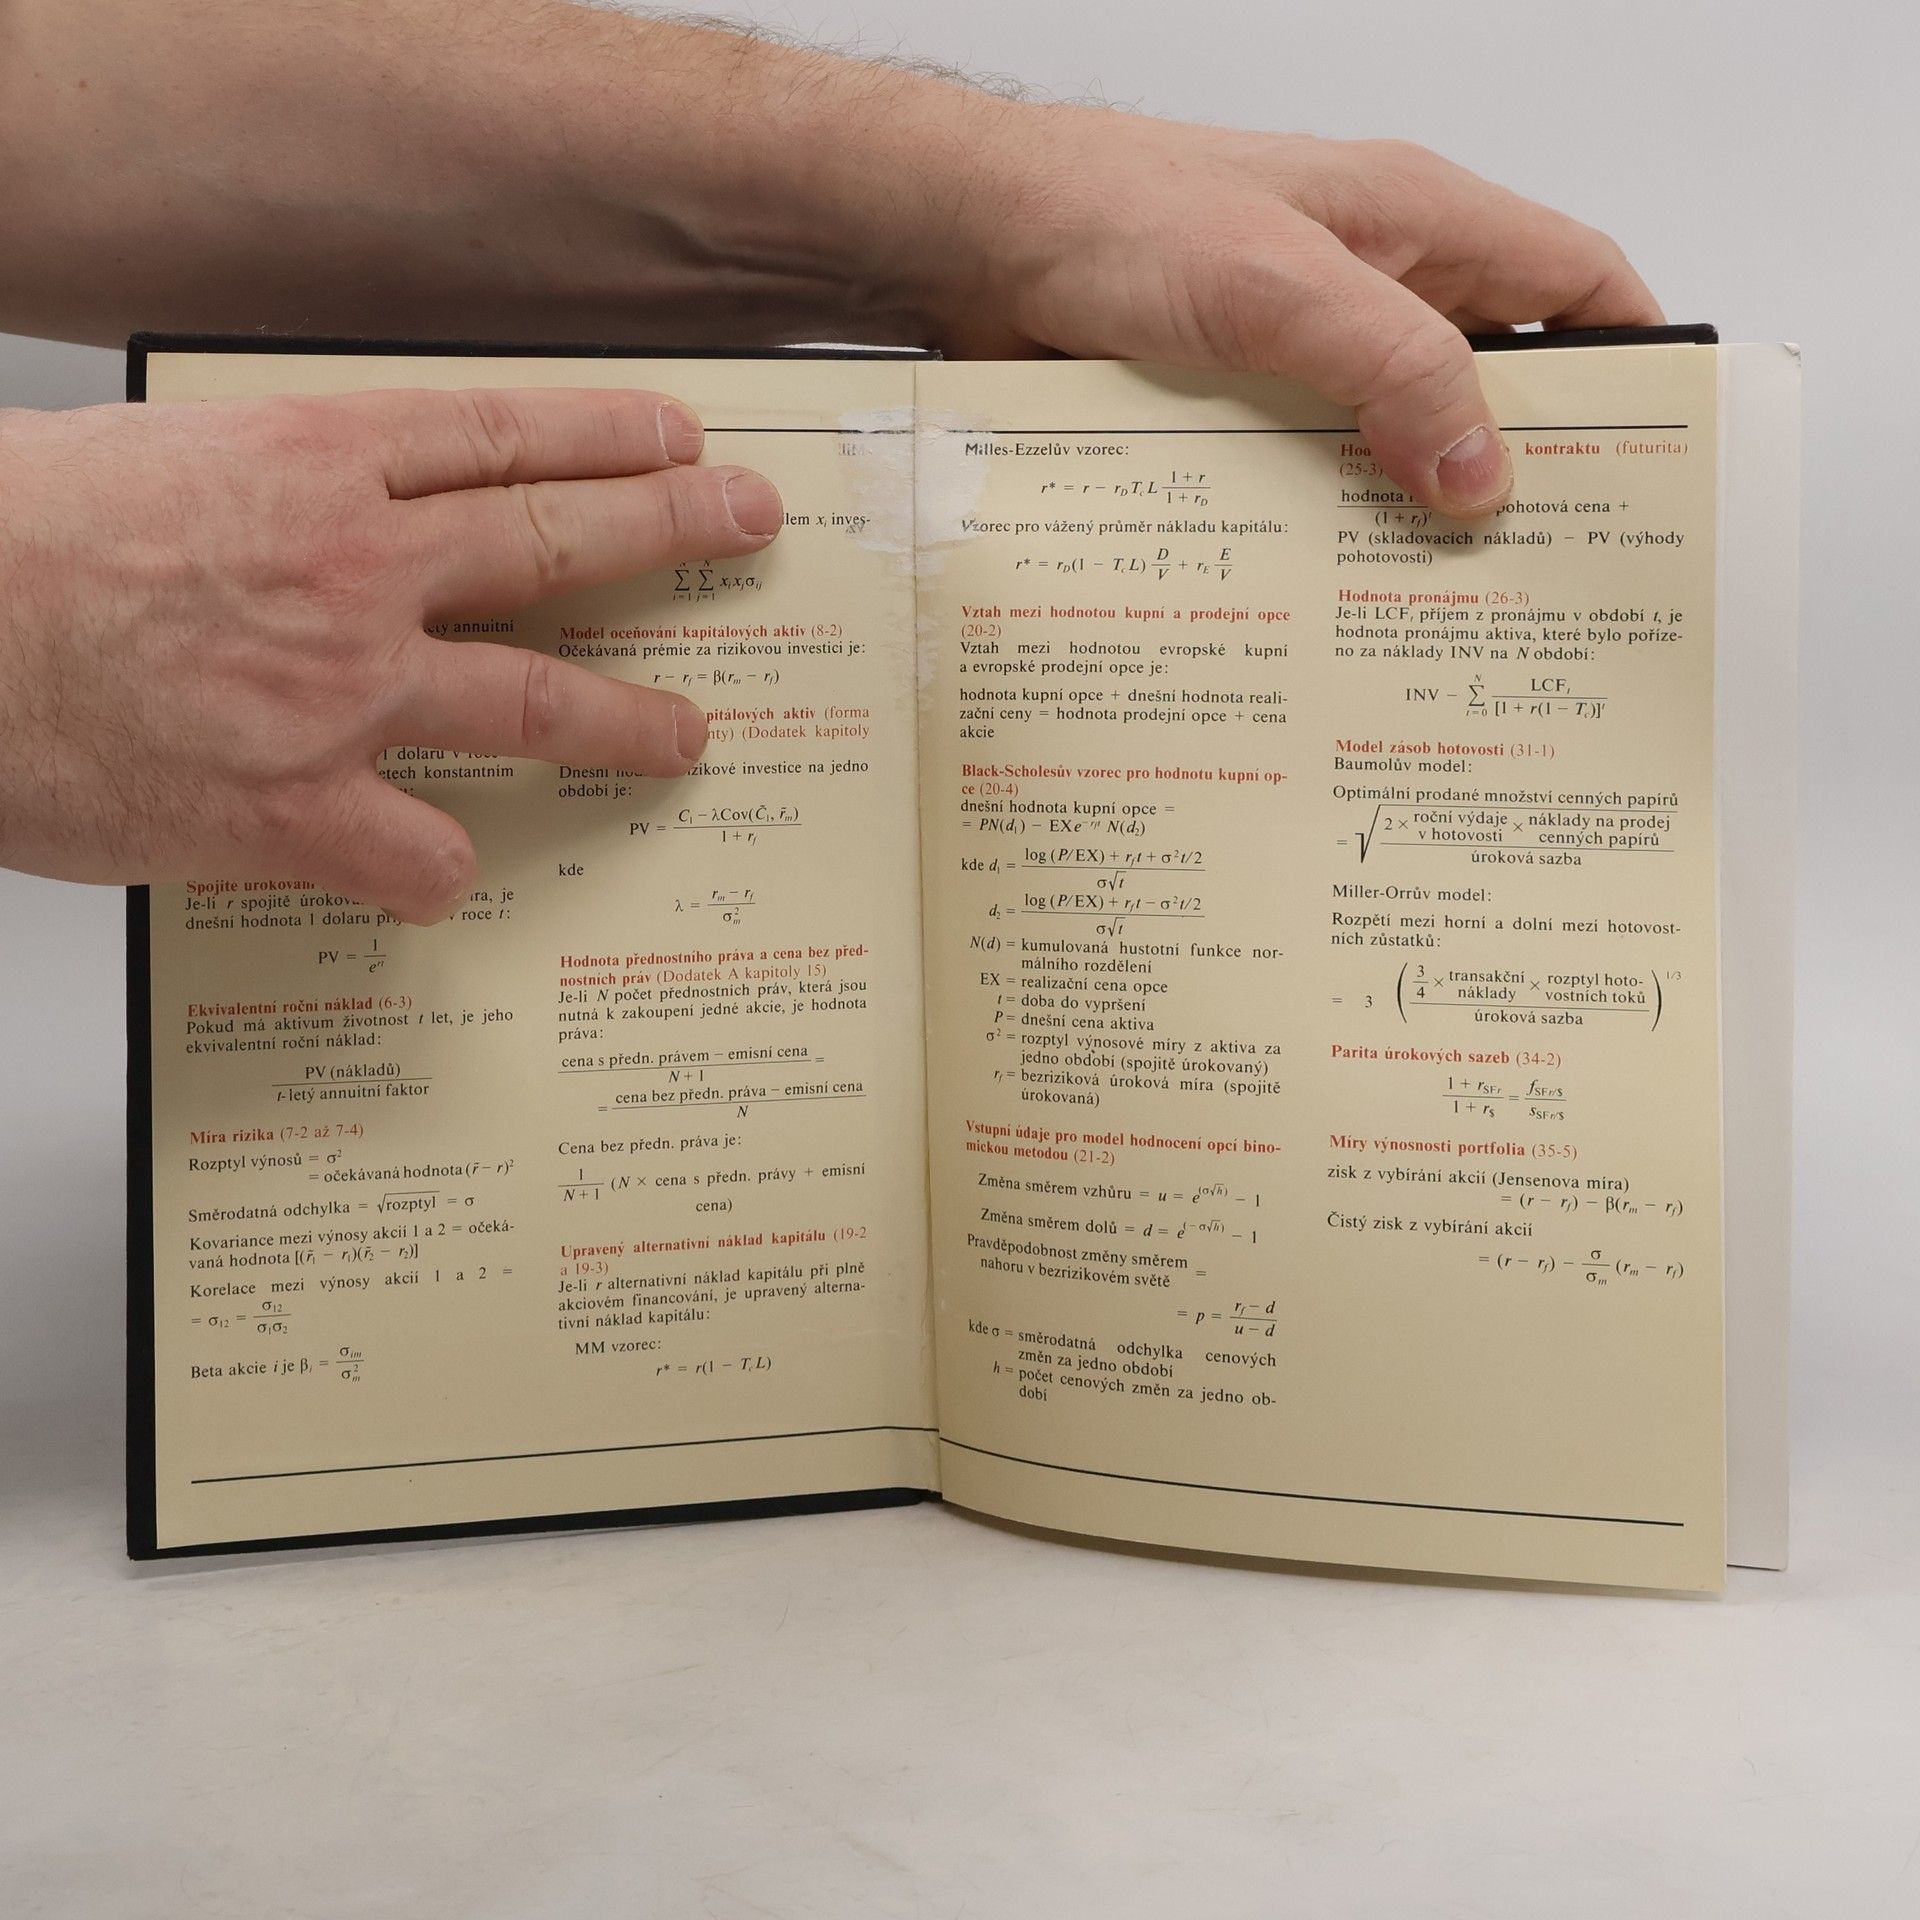 ety annuitní
1 dolaru v
etech konstantním
Spojité úrokování
Je-li r spojitě úrokov ra, je
dnešní hodnota 1 dolaru v roce t:
PV = 1 / e^rt
Ekvivalentní roční náklad (6-3)
Pokud má aktivum životnost t let, je jeho
ekvivalentní roční náklad:
PV (nákladů)
t-letý annuitní faktor
Míra rizika (7-2 až 7-4)
Rozptyl výnosů = σ²
= očekávaná hodnota (r̃ − r)²
Směrodatná odchylka = √rozptyl = σ
Kovariance mezi výnosy akcií 1 a 2 = očeká-
vaná hodnota [(r̃₁ − r₁)(r̃₂ − r₂)]
Korelace mezi výnosy akcií 1 a 2 =
= σ₁₂ = σ₁₂ / σ₁σ₂
Beta akcie i je βᵢ = σᵢₘ / σ²ₘ
lem xᵢ inves-
N N
∑ ∑ xᵢxⱼσᵢⱼ
i=1 j=1
Model oceňování kapitálových aktiv (8-2)
Očekávaná prémie za rizikovou investici je:
r − r_f = β(r_m − r_f)
pitálových aktiv (forma
nty) (Dodatek kapitoly
Dnešní zikové investice na jedno
období je:
PV = C₁ − λCov(C̃₁, r̃_m) / 1 + r_f
kde
λ = r_m − r_f / σ²_m
Hodnota přednostního práva a cena bez před-
nostních práv (Dodatek A kapitoly 15)
Je-li N počet přednostních práv, která jsou
nutná k zakoupení jedné akcie, je hodnota
práva:
cena s předn. právem − emisní cena / N + 1 =
= cena bez předn. práva − emisní cena / N
Cena bez předn. práva je:
1 / N + 1 (N × cena s předn. právy + emisní
cena)
Upravený alternativní náklad kapitálu (19-2
a 19-3)
Je-li r alternativní náklad kapitálu při plně
akciovém financování, je upravený alterna-
tivní náklad kapitálu:
MM vzorec:
r* = r(1 − T_cL)
Milles-Ezzelův vzorec:
r* = r − r_D T_c L 1 + r / 1 + r_D
Vzorec pro vážený průměr nákladu kapitálu:
r* = r_D(1 − T_cL) D/V + r_E E/V
Vztah mezi hodnotou kupní a prodejní opce
(20-2)
Vztah mezi hodnotou evropské kupní
a evropské prodejní opce je:
hodnota kupní opce + dnešní hodnota reali-
zační ceny = hodnota prodejní opce + cena
akcie
Black-Scholesův vzorec pro hodnotu kupní op-
ce (20-4)
dnešní hodnota kupní opce =
= PN(d₁) − EXe^−r_f t N(d₂)
kde d₁ = log (P/EX) + r_f t + σ²t/2 / σ√t
d₂ = log (P/EX) + r_f t − σ²t/2 / σ√t
N(d) = kumulovaná hustotní funkce nor-
málního rozdělení
EX = realizační cena opce
t = doba do vypršení
P = dnešní cena aktiva
σ² = rozptyl výnosové míry z aktiva za
jedno období (spojitě úrokovaný)
r_f = bezriziková úroková míra (spojitě
úrokovaná)
Vstupní údaje pro model hodnocení opcí bino-
mickou metodou (21-2)
Změna směrem vzhůru = u = e^(σ√h) − 1
Změna směrem dolů = d = e^(−σ√h) − 1
Pravděpodobnost změny směrem
nahoru v bezrizikovém světě =
= p = r_f − d / u − d
kde σ = směrodatná odchylka cenových
změn za jedno období
h = počet cenových změn za jedno ob-
dobí
kontraktu (futurita)
(25-3)
hodnota / (1 + r_f)^t pohotová cena +
PV (skladovacích nákladů) − PV (výhody
pohotovosti)
Hodnota pronájmu (26-3)
Je-li LCF_t příjem z pronájmu v období t, je
hodnota pronájmu aktiva, které bylo poříze-
no za náklady INV na N období:
INV − N ∑ t=0 LCF_t / [1 + r(1 − T_c)]^t
Model zásob hotovosti (31-1)
Baumolův model:
Optimální prodané množství cenných papírů
= √ 2 × roční výdaje v hotovosti × náklady na prodej cenných papírů / úroková sazba
Miller-Orrův model:
Rozpětí mezi horní a dolní mezí hotovost-
ních zůstatků:
= 3 ( 3/4 × transakční náklady × rozptyl hoto-vostních toků / úroková sazba )^1/3
Parita úrokových sazeb (34-2)
1 + r_SFr / 1 + r_$ = f_SFr/$ / s_SFr/$
Míry výnosnosti portfolia (35-5)
zisk z vybírání akcií (Jensenova míra)
= (r − r_f) − β(r_m − r_f)
Čistý zisk z vybírání akcií
= (r − r_f) − σ / σ_m (r_m − r_f)